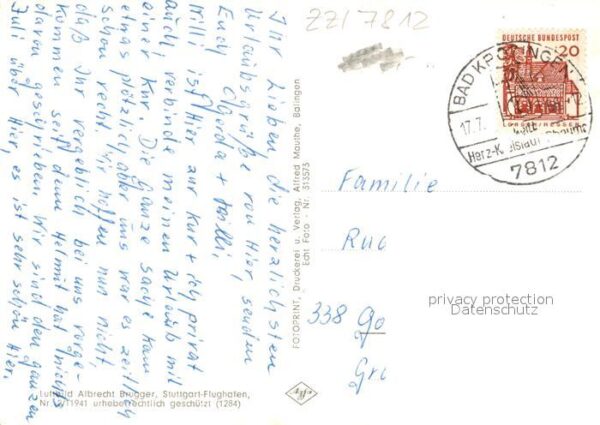 ZZ17812
Ihr Lieben die herzlichsten
Urlaubsgrüße von hier, senden
Euch Gerda + Willi,
Willi ist hier zur Kur + ich privat
auch verbinde meinen Urlaub mit
einer Kur. Die ganze Sache kam
etwas plötzlich aber uns war es zeitlich
schon recht. Wir hoffen nun nicht
daß Ihr vergeblich bei uns vorge-
kommen seit denn Helmut hat nichts
davon geschrieben. Wir sind den ganzen
Juli über hier, es ist sehr schön hier.
FOTOPRINT, Druckerei u. Verlag, Alfred Mauthe, Balingen
Echt Foto - Nr. 313575
DEUTSCHE BUNDESPOST
20
LORSCH/HESSEN
BAD KROZINGEN
17.7.
Herz-Kreislauf
7812
Familie
Rud
privacy protection
Datenschutz
338 Go
Gr
Luftbild Albrecht Brugger, Stuttgart-Flughafen,
Nr. 2/11941 urheberrechtlich geschützt (1284)